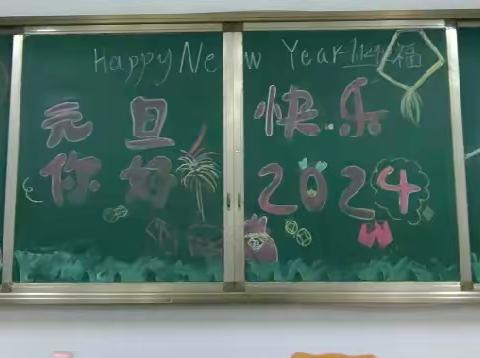 Happy New Year! 福
元旦快乐
你好2024